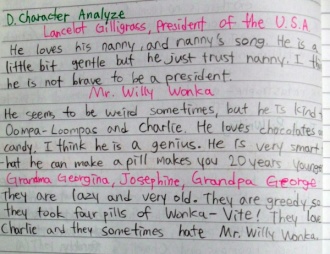 D. Character Analyze
Lancelot Gilligrass, President of the U.S.A
He loves his nanny, and nanny's song. He is a
little bit gentle but he just trust nanny. I
he is not brave to be a president.
Mr. Willy Wonka
He seems to be weird sometimes, but he is kind
Oompa-Loompas and Charlie. He loves chocolates
candy. I think he is a genius. He is very smart
that he can make a pill makes you 20 years younger
Grandma Georgina, Josephine, Grandpa George
They are lazy and very old. They are greedy, so
they took four pills of Wonka-Vite! They love
Charlie and they sometimes hate Mr. Willy Wonka.